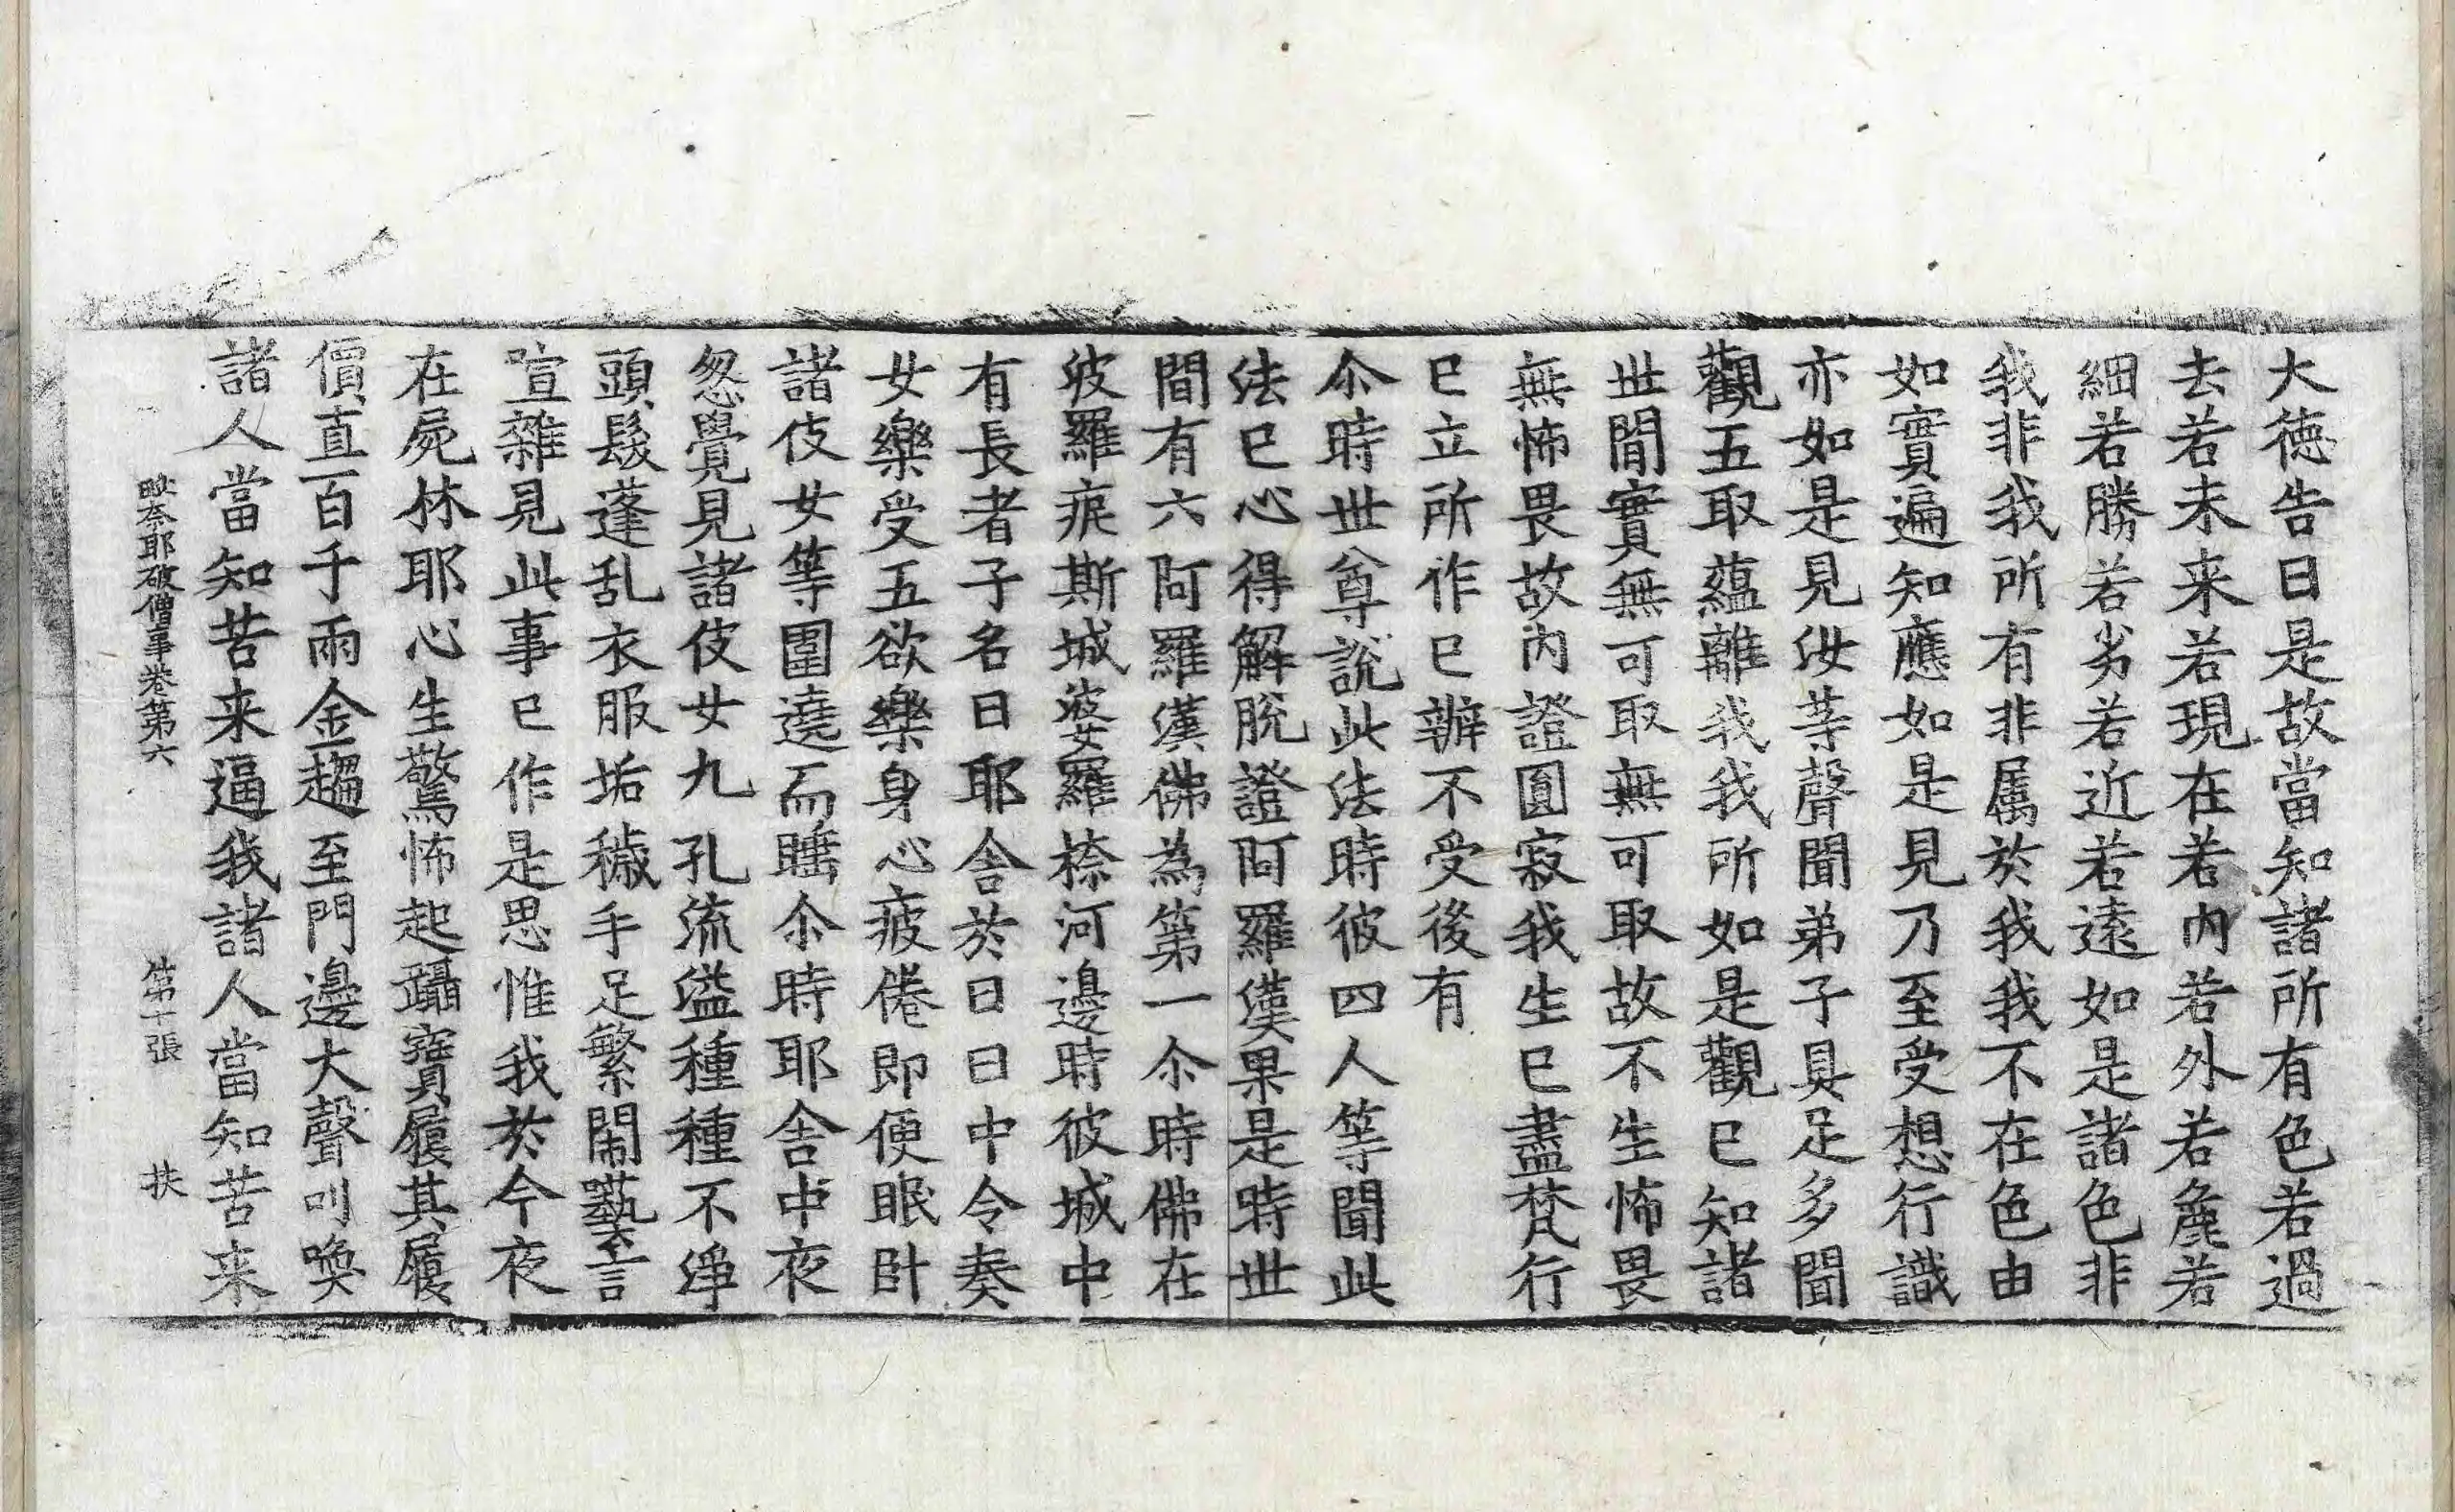 大徳告曰是故當知諸所有色若過
去若未来若現在若内若外若麁若
細若勝若劣若近若遠如是諸色非
我非我所有非属於我我不在色由
如實遍知應如是見乃至受想行識
亦如是見汝等聲聞弟子具足多聞
觀五取蘊離我我所如是觀已知諸
世間實無可取無可取故不生怖畏
無怖畏故内證圓寂我生已盡梵行
已立所作已辦不受後有
尒時世尊說此法時彼四人等聞此
法已心得解脫證阿羅漢果是時世
間有六阿羅漢佛為第一尒時佛在
波羅痆斯城婆羅㮈河邊時彼城中
有長者子名曰耶舍於日日中令奏
女樂受五欲樂身心疲倦即便眠卧
諸伎女等圍遶而睡尒時耶舍中夜
忽覺見諸伎女九孔流溢種種不淨
頭髮蓬乱衣服垢穢手足繁閙囈言
喧雜見此事已作是思惟我於今夜
在屍林耶心生驚怖起躡寶屐其屐
價直百千兩金趨至門邊大聲叫喚
諸人當知苦来逼我諸人當知苦来
毗奈耶破僧事卷第六 第十張 扶